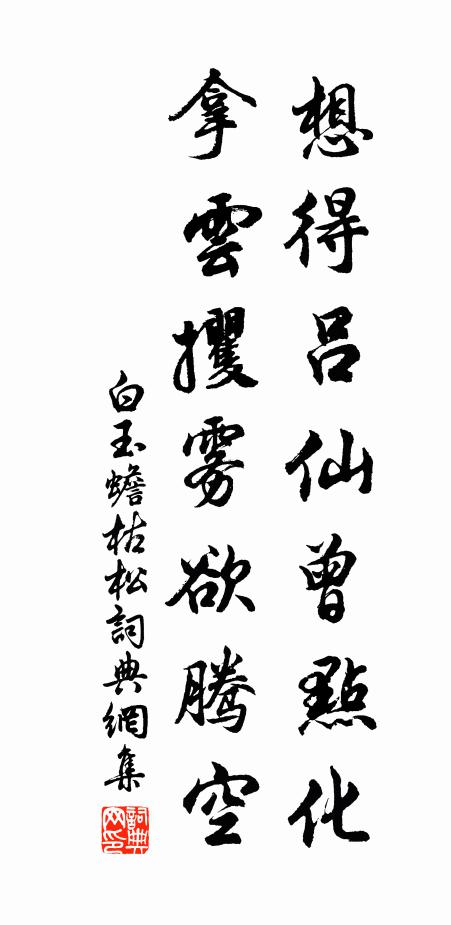 想得吕仙曾點化
拿雲攫雾欲騰空
白玉蟾枯松詞典網集
詞典网印